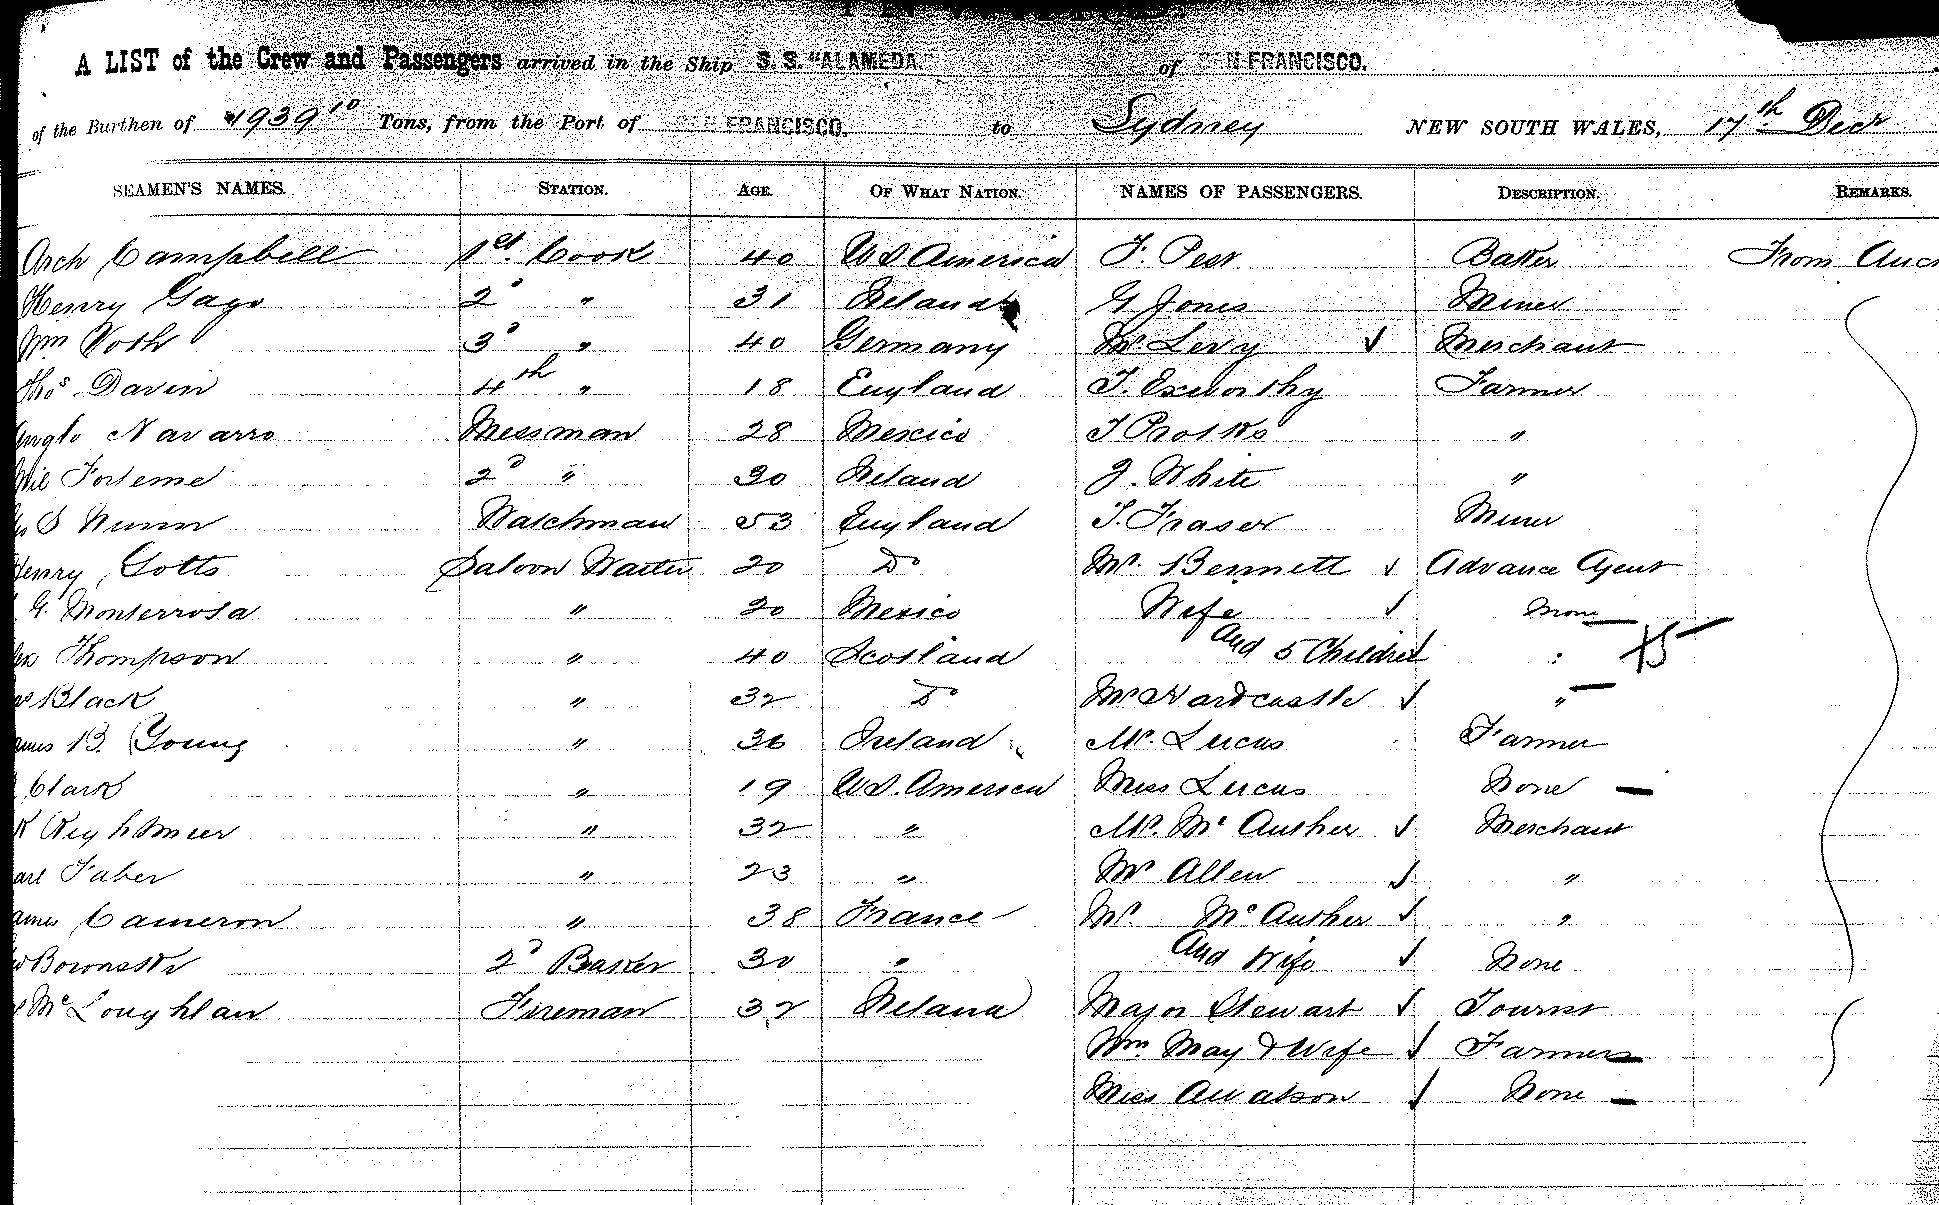 A LIST of the Crew and Passengers arrived in the Ship S. S. "ALAMEDA" of SAN FRANCISCO.
of the Burthen of 1939 10 Tons, from the Port of SAN FRANCISCO. to Sydney NEW SOUTH WALES, 17th Decr
SEAMEN'S NAMES. STATION. AGE. OF WHAT NATION. NAMES OF PASSENGERS. DESCRIPTION. REMARKS.
Arch Campbell 1st Cook 40 U S America F. Baker From Auc
Henry Gago 2d " 31 Ireland G Jones Miner
Wm Voth 3d " 40 Germany Mr Levy Merchant
Thos Davin 4th " 18 England T. Exworthy Farmer
Navarro Messman 28 Mexico "
2d " 30 Ireland J. White "
S Nunn Watchman 53 England T. Fraser Miner
Henry Gotts Saloon Waiter 20 Do Mr. Bennett Advance Agent
G. Monterrosa " 20 Mexico Wife None
Thompson " 40 Scotland And 5 Children " X5
Black " 32 Do Mr Hardcastle "
ames B. Young " 36 Ireland Mr. Lucas Farmer
Clark " 19 U S. America Miss Lucas None
" 32 " Mr. Mc Auther Merchant
arl Faber " 23 " Mr Allen "
ames Cameron " 38 France Mr Mc Auther "
2d Baker 30 " And Wife None
McLoughlan Fireman 32 Ireland Major Stewart Tourist
Wm May & Wife Farmers
Miss None